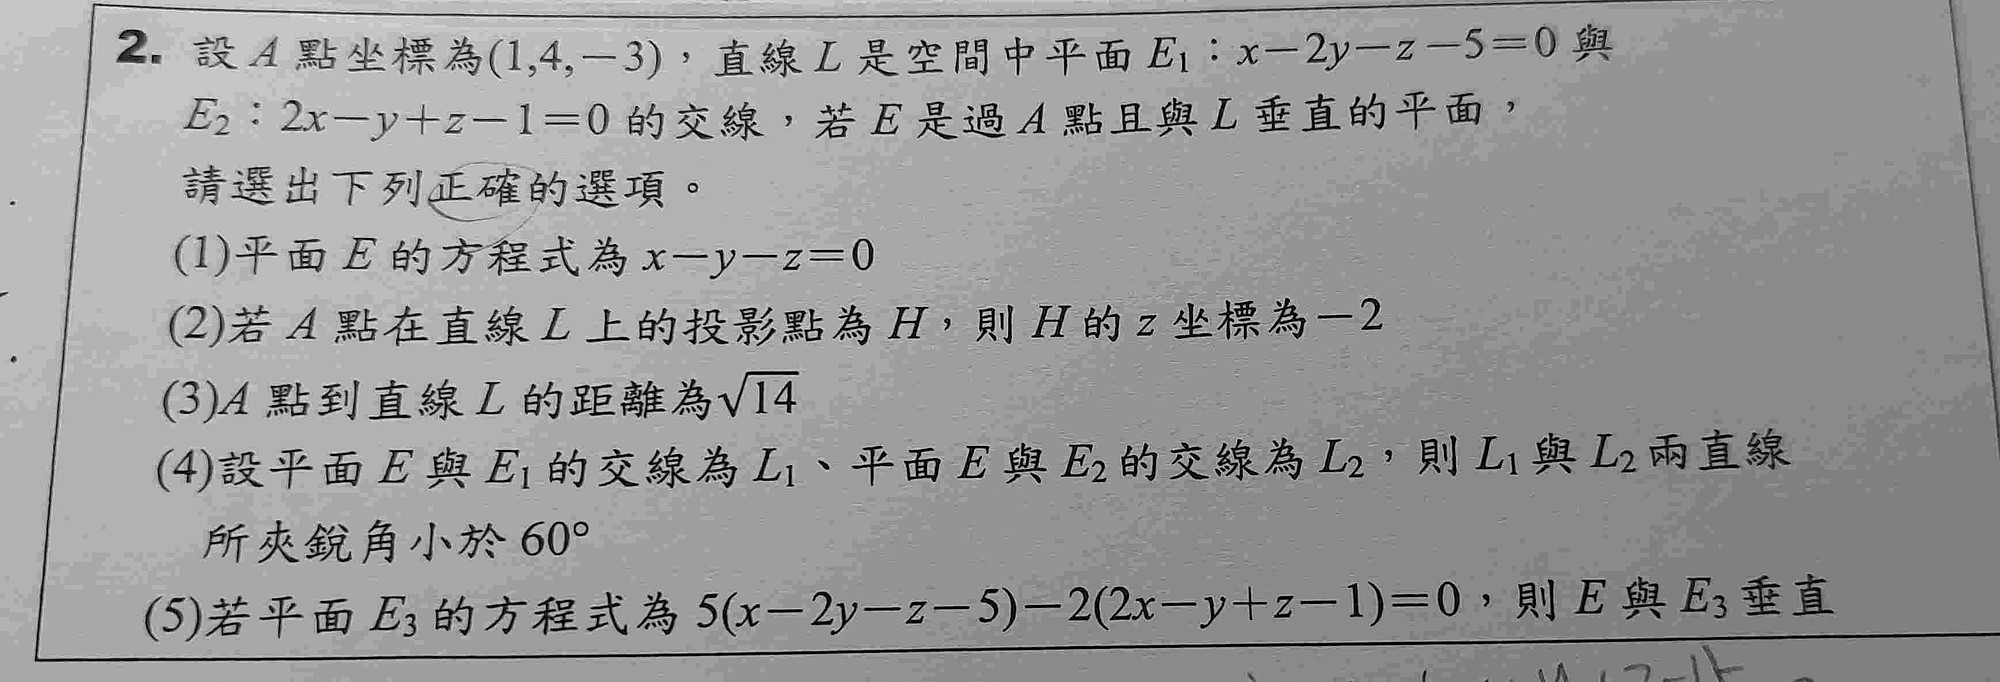 2. 設 A 點坐標為(1,4,－3)，直線 L 是空間中平面 E₁：x－2y－z－5＝0 與
E₂：2x－y＋z－1＝0 的交線，若 E 是過 A 點且與 L 垂直的平面，
請選出下列正確的選項。
(1)平面 E 的方程式為 x－y－z＝0
(2)若 A 點在直線 L 上的投影點為 H，則 H 的 z 坐標為－2
(3)A 點到直線 L 的距離為√14
(4)設平面 E 與 E₁ 的交線為 L₁、平面 E 與 E₂ 的交線為 L₂，則 L₁ 與 L₂ 兩直線
所夾銳角小於 60°
(5)若平面 E₃ 的方程式為 5(x－2y－z－5)－2(2x－y＋z－1)＝0，則 E 與 E₃ 垂直